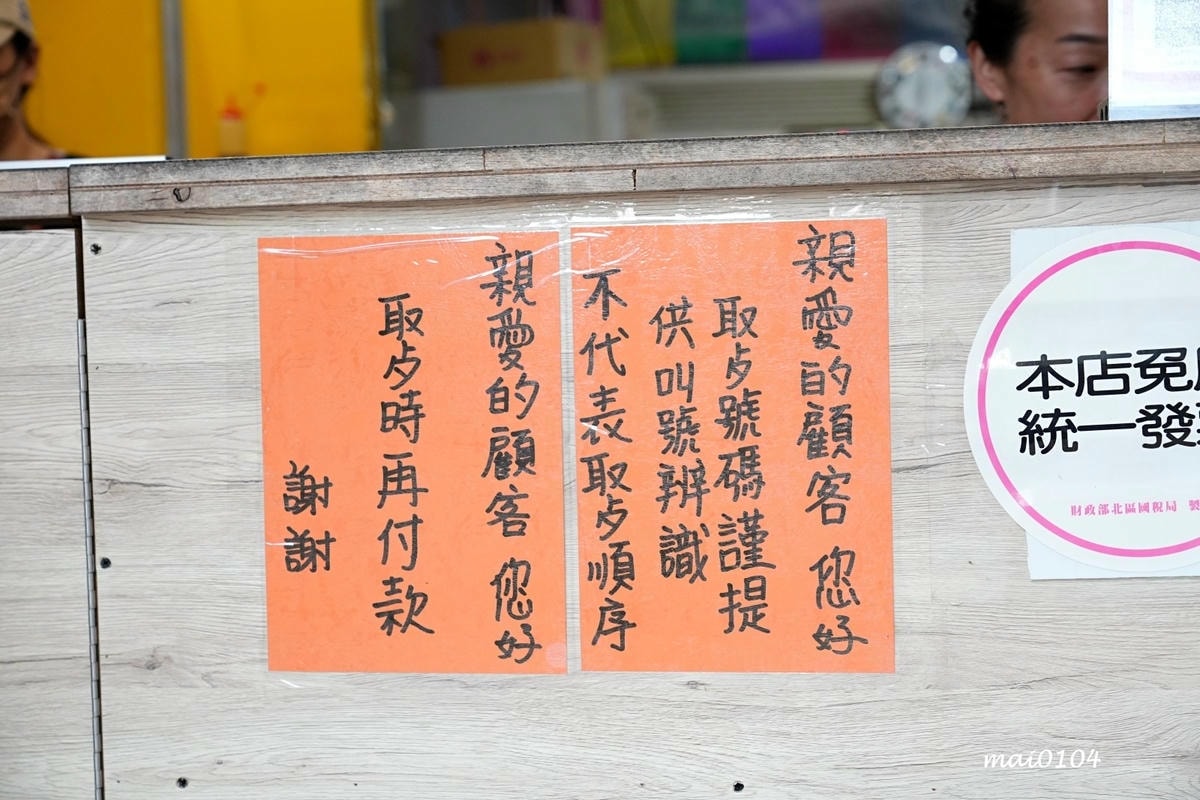 親愛的顧客 您好
取歺號碼謹提
供叫號辨識
不代表取歺順序
親愛的顧客 您好
取歺時再付款
謝謝
本店免
統一發
財政部北區國稅局 製
mai0104